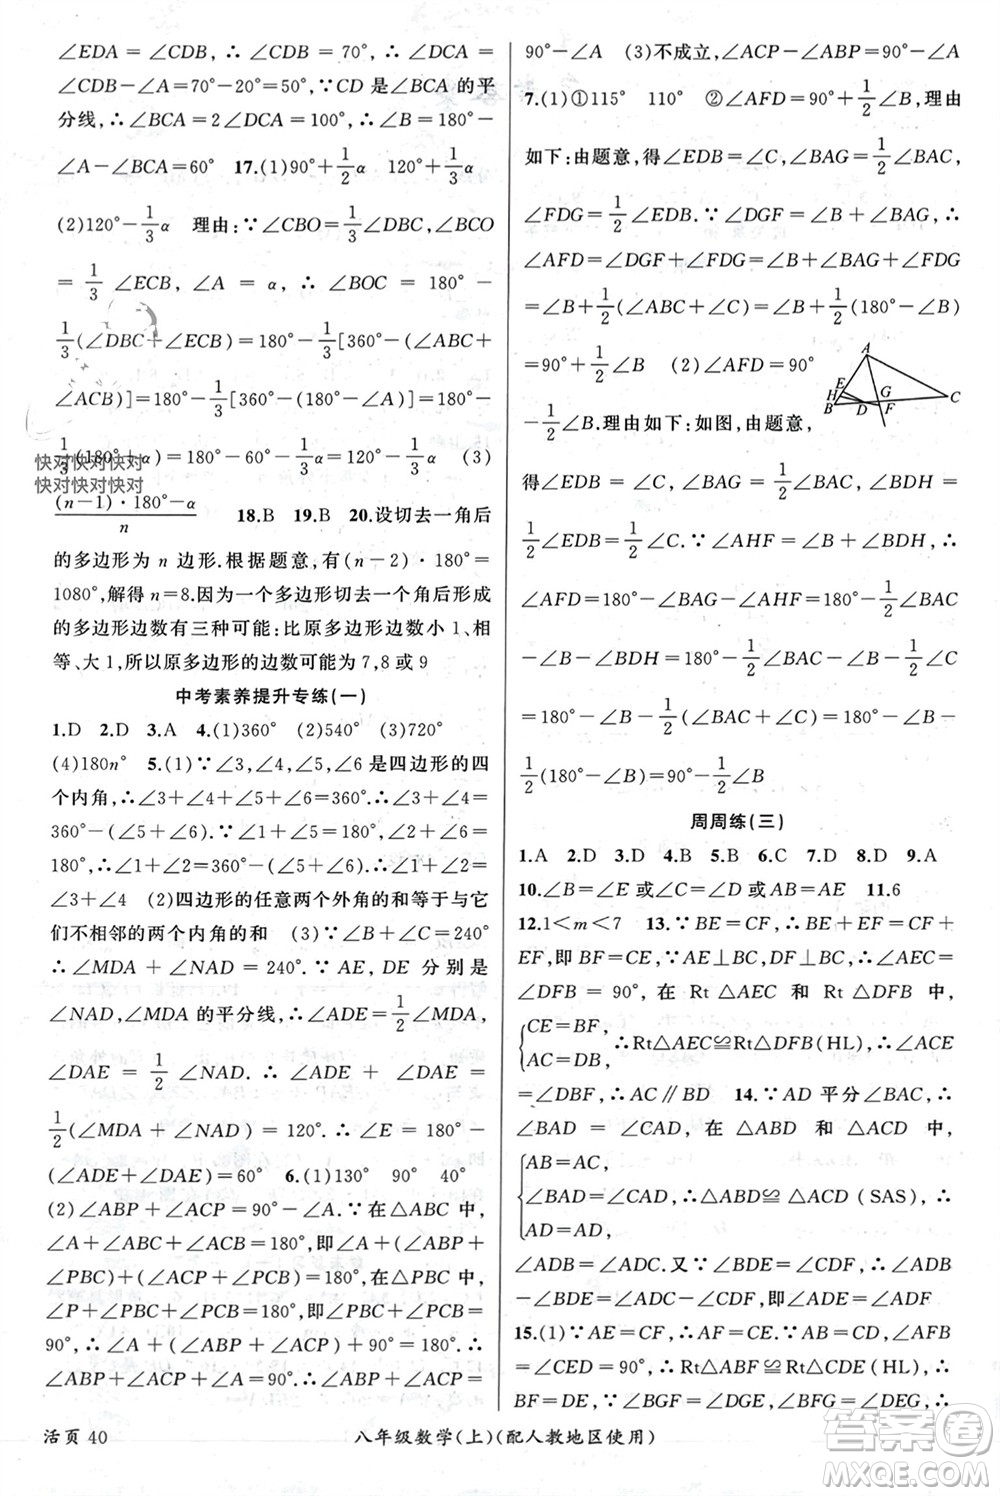 ∠EDA=∠CDB,∴∠CDB=70°,∴∠DCA=
∠CDB-∠A=70°-20°=50°∵CD是∠BCA的平
分线,∴∠BCA=2∠DCA=100°,∴∠B=180°-
∠A-∠BCA=60° 17.(1)90°+1/2α 120°+1/3α
(2)120°-1/3α 理由:∵∠CBO=1/3∠DBC,∠BCO
=1/3∠ECB,∠A=α,∴∠BOC=180°-
1/3(∠DBC+∠ECB)=180°-1/3[360°-(∠ABC+
∠ACB)]=180°-1/3[360°-(180°-∠A)]=180°-
1/3(180°+α)=180°-60°-1/3α=120°-1/3α (3)
快对快对快对
快对快对快对
(n-1)·180°-α/n 18.B 19.B 20.设切去一角后
的多边形为n边形.根据题意,有(n-2)·180°=
1080°,解得n=8.因为一个多边形切去一个角后形成
的多边形边数有三种可能:比原多边形边数小1、相
等、大1,所以原多边形的边数可能为7,8或9
中考素养提升专练(一)
1.D 2.D 3.A 4.(1)360° (2)540° (3)720°
(4)180n° 5.(1)∵∠3,∠4,∠5,∠6是四边形的四
个内角,∴∠3+∠4+∠5+∠6=360°,∴∠3+∠4=
360°-(∠5+∠6).∵∠1+∠5=180°,∠2+∠6=
180°,∴∠1+∠2=360°-(∠5+∠6),∴∠1+∠2=
∠3+∠4 (2)四边形的任意两个外角的和等于与它
们不相邻的两个内角的和 (3)∵∠B+∠C=240°
∴∠MDA+∠NAD=240°.∵AE,DE分别是
∠NAD,∠MDA的平分线,∴∠ADE=1/2∠MDA,
∠DAE=1/2∠NAD.∴∠ADE+∠DAE=
1/2(∠MDA+∠NAD)=120°.∴∠E=180°-
(∠ADE+∠DAE)=60° 6.(1)130° 90° 40°
(2)∠ABP+∠ACP=90°-∠A.∵在△ABC中,
∠A+∠ABC+∠ACB=180°,即∠A+(∠ABP+
∠PBC)+(∠ACP+∠PCB)=180°,在△PBC中,
∠P+∠PBC+∠PCB=180°,即∠PBC+∠PCB=
90°,∴∠A+(∠ABP+∠ACP)+90°=180°.∴
∠ABP+∠ACP+∠A=90°,∴∠ABP+∠ACP=
90°-∠A (3)不成立,∠ACP-∠ABP=90°-∠A
7.(1)①115° 110° ②∠AFD=90°+1/2∠B,理由
如下:由题意,得∠EDB=∠C,∠BAG=1/2∠BAC,
∠FDG=1/2∠EDB.∵∠DGF=∠B+∠BAG,∴
∠AFD=∠DGF+∠FDG=∠B+∠BAG+∠FDG
=∠B+1/2(∠BAC+∠C)=∠B+1/2(180°-∠B)
=90°+1/2∠B (2)∠AFD=90°
-1/2∠B.理由如下:如图,由题意,
A
E
H
B
D
G
F
C
得∠EDB=∠C,∠BAG=1/2∠BAC,∠BDH=
1/2∠EDB=1/2∠C.∵∠AHF=∠B+∠BDH,∴
∠AFD=180°-∠BAG-∠AHF=180°-1/2∠BAC
-∠B-∠BDH=180°-1/2∠BAC-∠B-1/2∠C
=180°-∠B-1/2(∠BAC+∠C)=180°-∠B-
1/2(180°-∠B)=90°-1/2∠B
周周练(三)
1.A 2.D 3.D 4.B 5.B 6.C 7.D 8.D 9.A
10.∠B=∠E或∠C=∠D或AB=AE 11.6
12.1<m<7 13.∵BE=CF,∴BE+EF=CF+
EF,即BF=CE.∵AE⊥BC,DF⊥BC,∴∠AEC=
∠DFB=90°,在Rt△AEC和Rt△DFB中,
{CE=BF,
AC=DB, ∴Rt△AEC≌Rt△DFB(HL),∴∠ACE
=∠DBF,∴AC∥BD 14.∵AD平分∠BAC,∴
∠BAD=∠CAD,在△ABD和△ACD中,
{AB=AC,
∠BAD=∠CAD,∴△ABD≌△ACD(SAS),∴
AD=AD,
∠ADB=∠ADC.又∵∠BDE=∠CDF,∴∠ADB
-∠BDE=∠ADC-∠CDF,即∠ADE=∠ADF
15.(1)∵AE=CF,∴AF=CE,在△ABF,∠AFB
=∠CED=90°,∴Rt△ABF≌Rt△CDE(HL),∴
BF=DE,∵∠BGF=∠DGE,∠BFG=∠DEG,∴
活页 40
八年级数学(上)(配人教地区使用)
答案圈
MXQE.COM